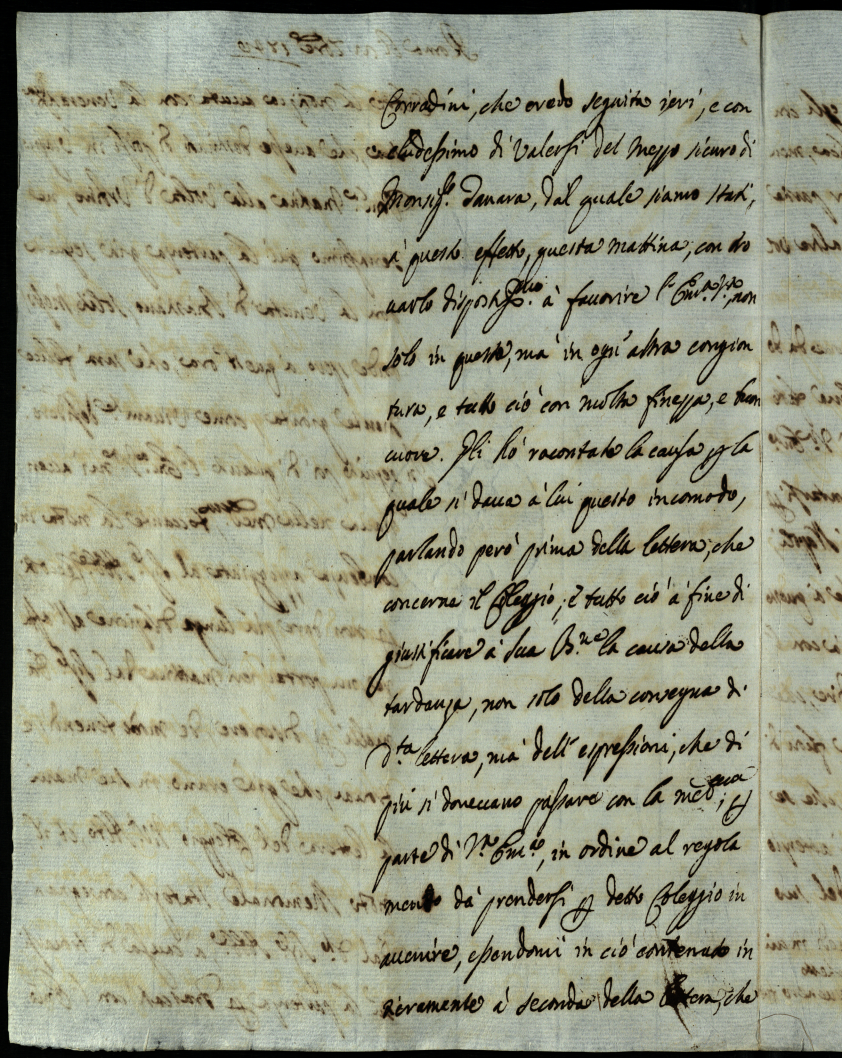 Corradini, che credo seguita ieri, e con
cludessimo di valersi del mezzo sicuro di
Monsig.e Davara, dal quale siamo stati,
à questo effetto, questa mattina, con tro
uarlo dispostiss.mo à fauorire l'Em.a V.ra, non
solo in questo, mà in ogn'altra congion
tura, e tutto ciò con molta finezza, e buon
cuore. Gli hò racontato la causa, p la
quale si daua à lui questo incomodo,
parlando però prima della lettera, che
concerne il Coleggio, e tutto ciò à fine di
giustificare à Sua B.ne la causa della
tardanza, non solo della consegna di
d.ta lettera, mà dell'espressioni, che di
più si doueuano passare con la med.ma, p
parte di V.ra Em.a, in ordine al regola
mento dà prendersi p detto Coleggio in
auuenire, essendomi in ciò contenuto in
tieramente à seconda della lettera, che